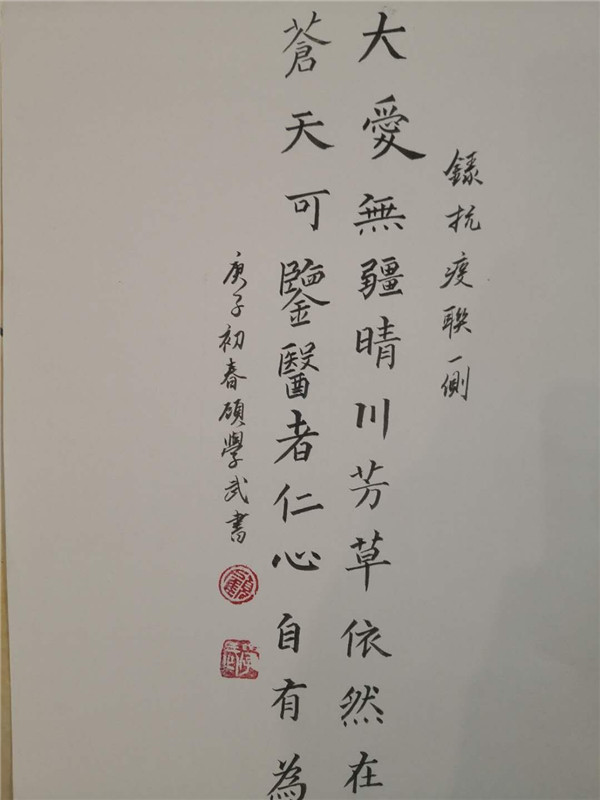 錄抗疫聯一側
大愛無疆晴川芳草依然在
蒼天可鑒醫者仁心自有為
庚子初春頋學武書